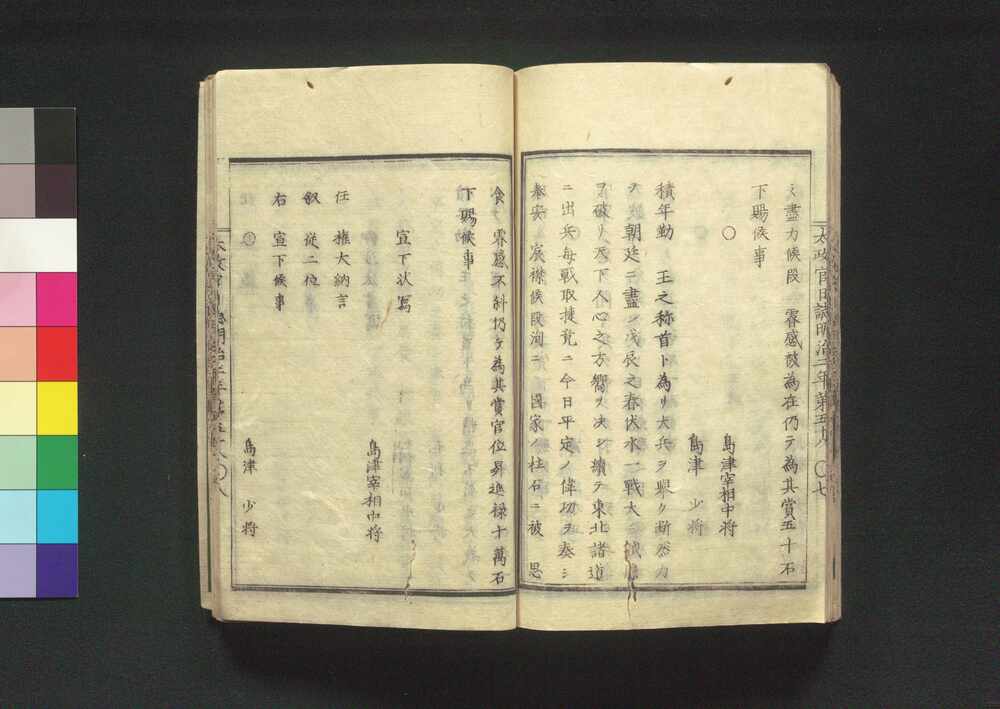 ヽ盡力候段 睿感被為在仍テ為其賞五十石
下賜候事
〇
島津宰相中将
島津 少将
積年勤 王之称首ト為リ大兵ヲ擧ク断然力
ヲ 朝廷ニ盡シ戊辰之春伏水一戦大ニ
ヲ破リ天下人心之方嚮ヲ決シ續テ東北諸道
ニ出兵毎戦取捷竟ニ今日平定ノ偉功ヲ奏シ
奉安 宸襟候段洵ニ 國家ノ柱石ニ被 思
太政官日誌明治二年第五十八 〇七
食 睿感不斜仍テ為其賞官位昇進禄十萬石
下賜候事
宣下状寫
島津宰相中将
任 権大納言
叙 従二位
右 宣下候事
島津 少将
太政官日誌明治二年第五十八 〇八